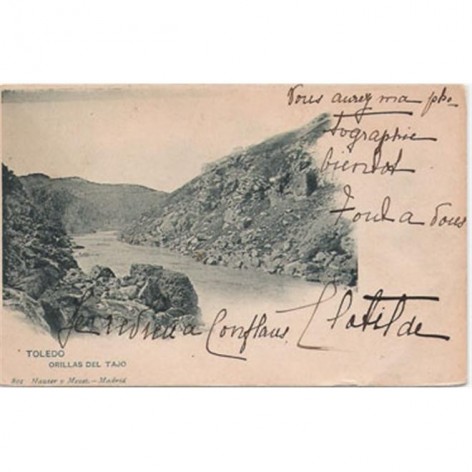 Vous aurez ma pho-
tographie
bientôt
Tout a vous
a Conflans. Clotilde
TOLEDO
ORILLAS DEL TAJO
Hauser y Menet.—Madrid